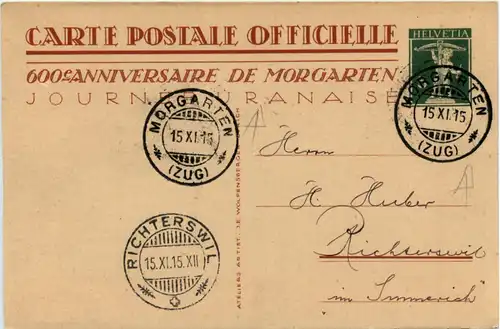 CARTE POSTALE OFFICIELLE
HELVETIA
600E ANNIVERSAIRE DE MORGARTEN
JOURNÉE URANAISE
MORGARTEN
15 XI. 15
(ZUG)
MORGARTEN
15 XI. 15
(ZUG)
Herrn
H. Huber
Richterswil
im
RICHTERSWIL
15. XI. 15. XII
ATELIERS ARTIST. J.E. WOLFENSBERGER